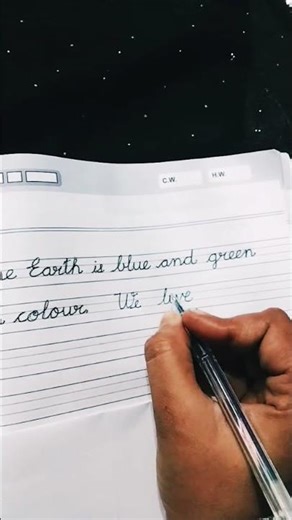 C.W. H.W.
Earth is blue and green
colour. We live